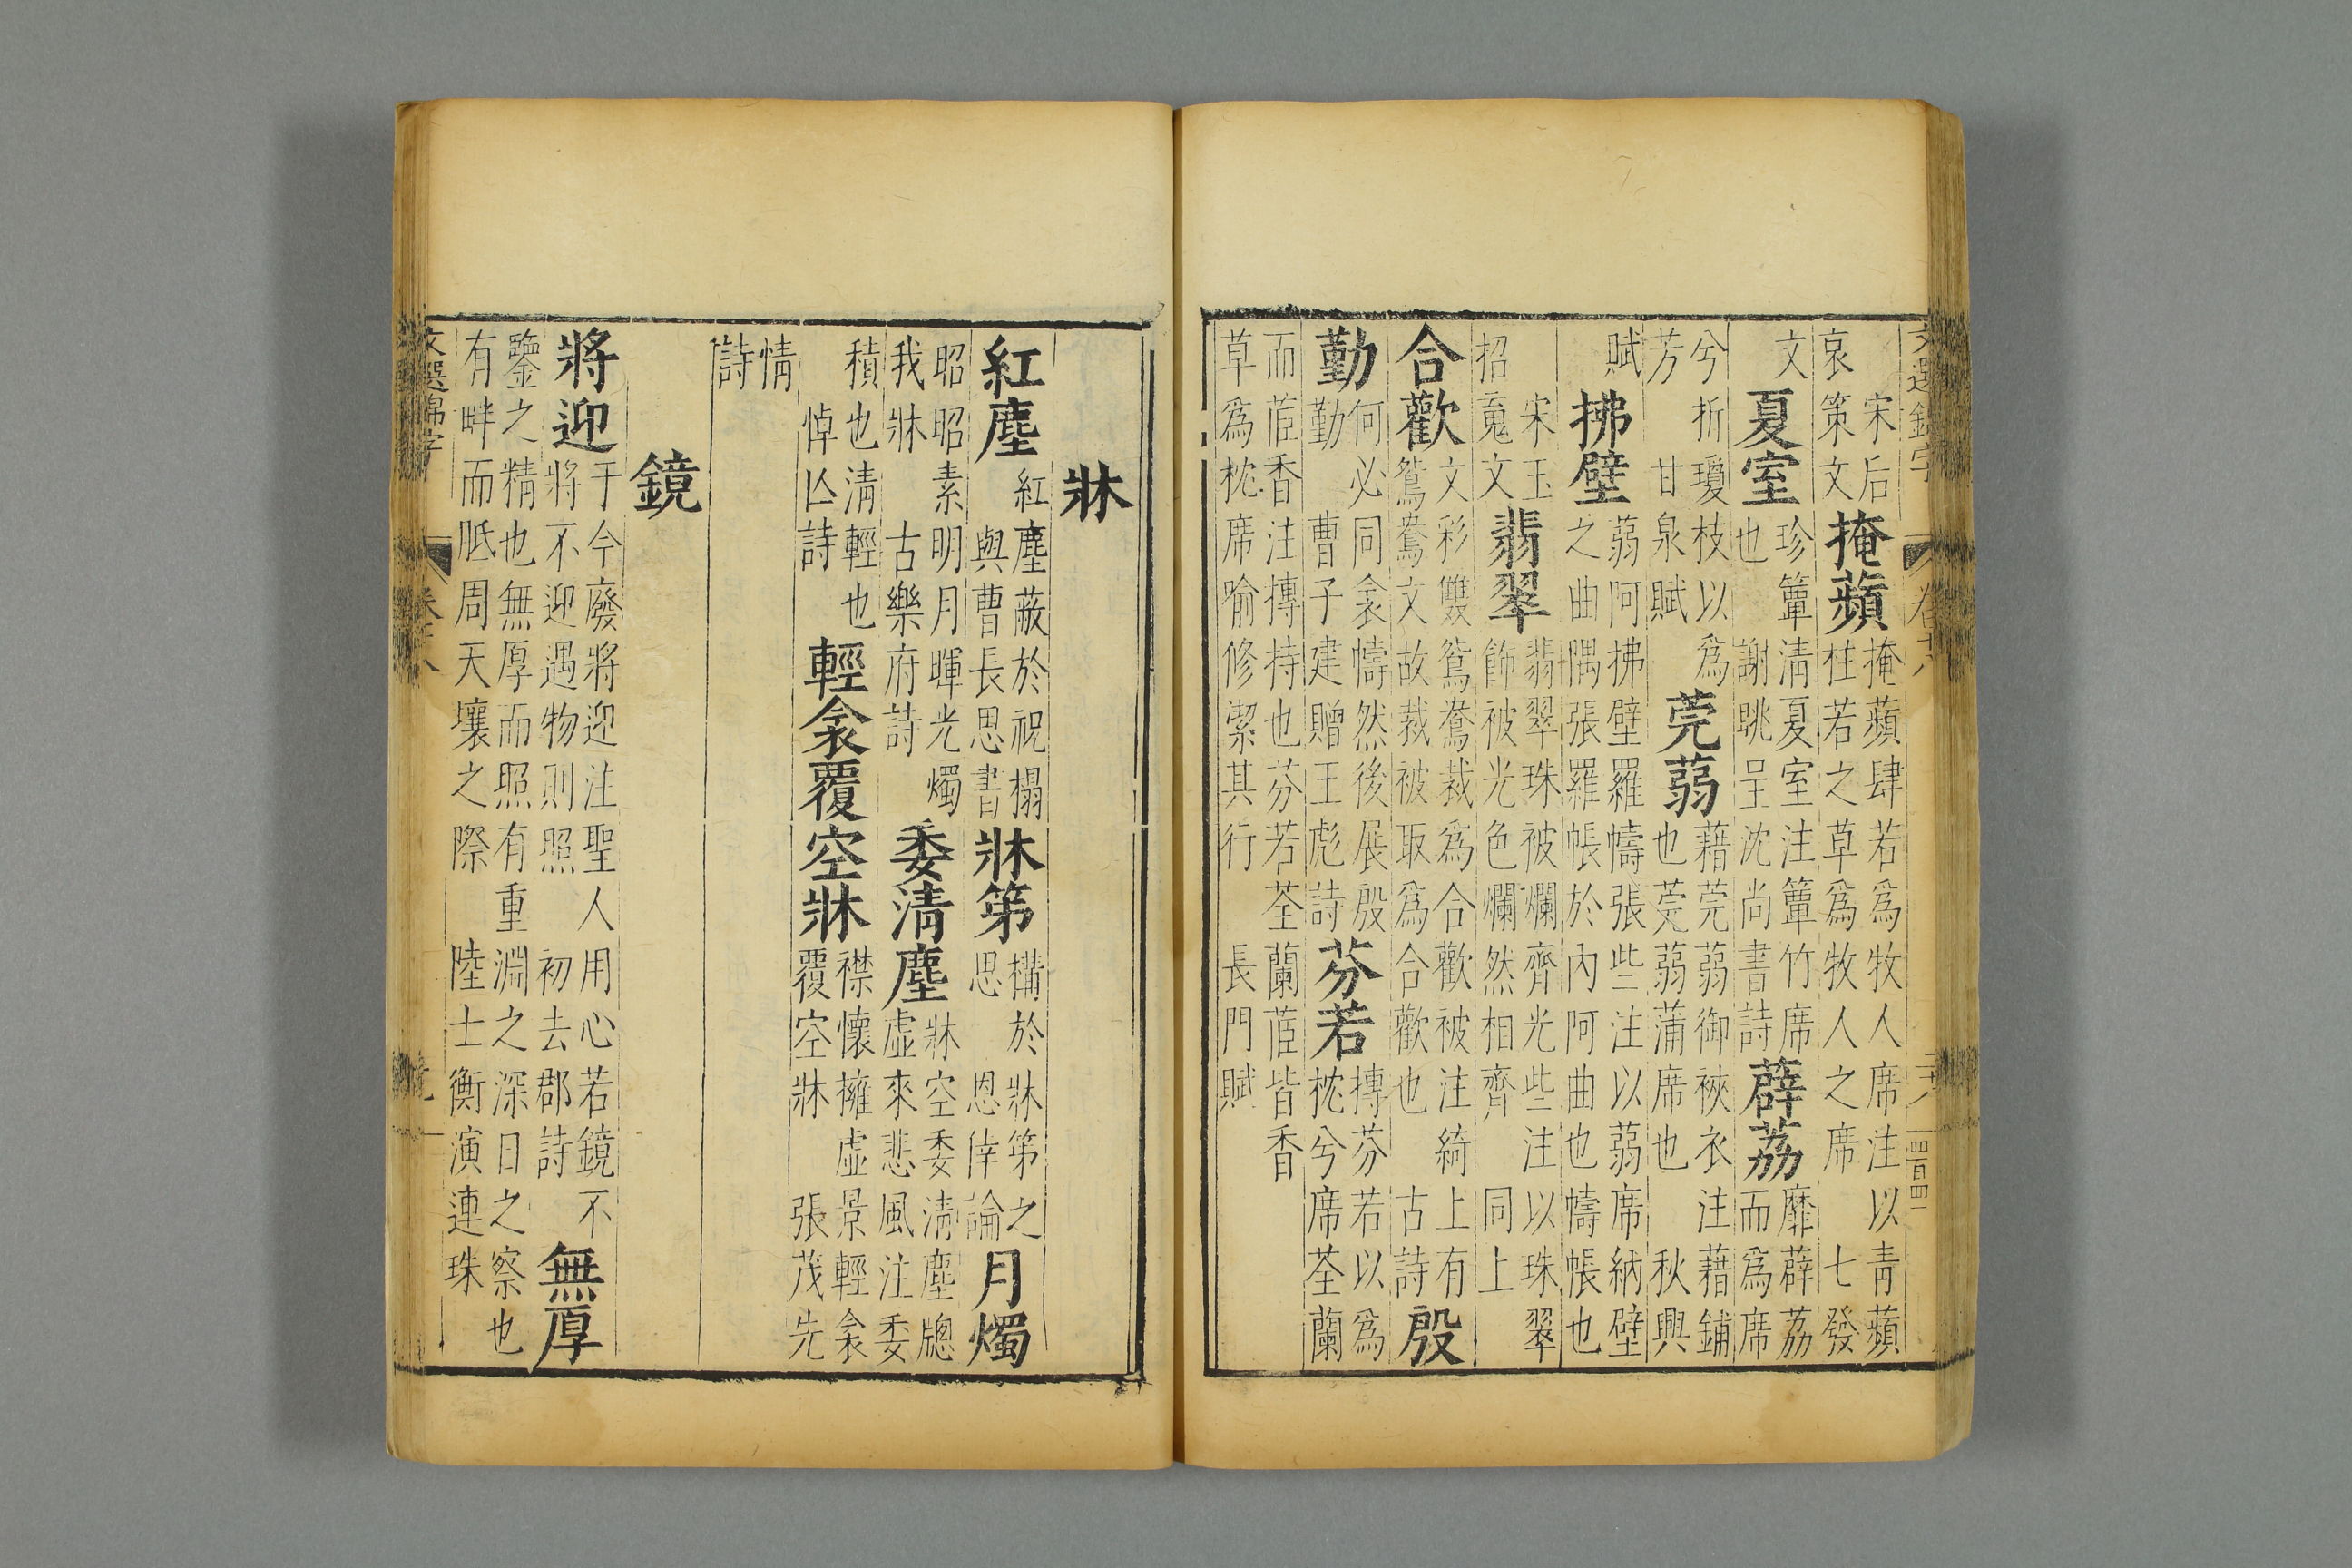 宋后
哀策文
掩蘋
掩蘋肆若爲牧人席注以青蘋
杜若之草爲牧人之席 七發
文
夏室
珍簟清夏室注簟竹席
也 謝眺呈沈尚書詩
薜荔
靡薜荔
而爲席
兮折瓊枝以爲
芳 甘泉賦
莞蒻
藉莞蒻御裌衣注藉鋪
也莞蒻蒲席也 秋興
賦
拂壁
蒻阿拂壁羅幬張些注以蒻席納壁
之曲隅張羅帳於內阿曲也幬帳也
宋玉
招䰟文
翡翠
翡翠珠被爛齊光些注以珠翠
飾被光色爛然相齊 同上
合歡
文彩雙鴛鴦裁爲合歡被注綺上有
鴛鴦文故裁被取爲合歡也 古詩
殷
勤
何必同衾幬然後展殷
勤 曹子建贈王彪詩
芬若
摶芬若以爲
枕兮席荃蘭
而茝香注摶持也芬若荃蘭茝皆香
草爲枕席喻修潔其行 長門賦
牀
紅塵
紅塵蔽於祝榻
與曹長思書
牀第
構於牀第之
思 恩倖論
月燭
昭昭素明月暉光燭
我牀 古樂府詩
委清塵
牀空委清塵牕
虛來悲風注委
積也清輕也
悼亾詩
輕衾覆空牀
襟懷擁虛景輕衾
覆空牀 張茂先
情
詩
鏡
將迎
于今廢將迎注聖人用心若鏡不
將不迎遇物則照 初去郡詩
無厚
鑒之精也無厚而照有重淵之深日之察也
有畔而眡周天壤之際 陸士衡演連珠
文選錦字